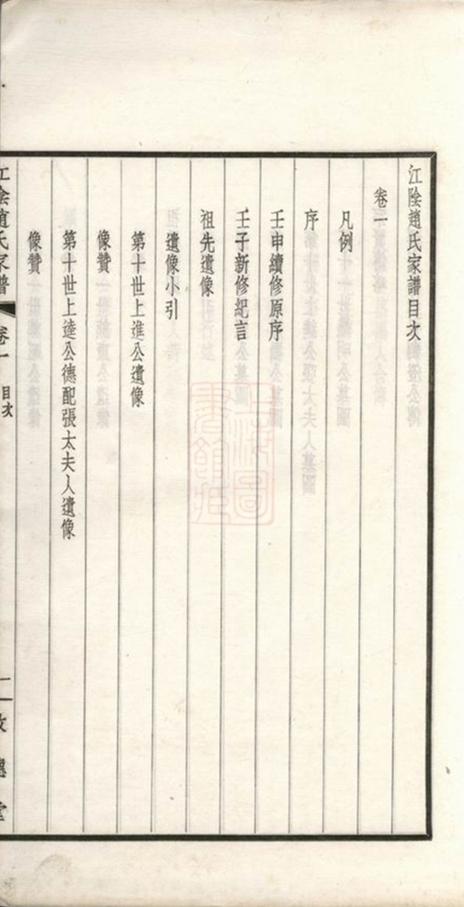 江陰趙氏家譜目次
卷一
凡例
序
壬申續修原序
壬子新修紀言
祖先遺像
遺像小引
第十世上進公遺像
像贊
第十世上達公德配張太夫人遺像
像贊
江陰趙氏家譜 卷一 目次